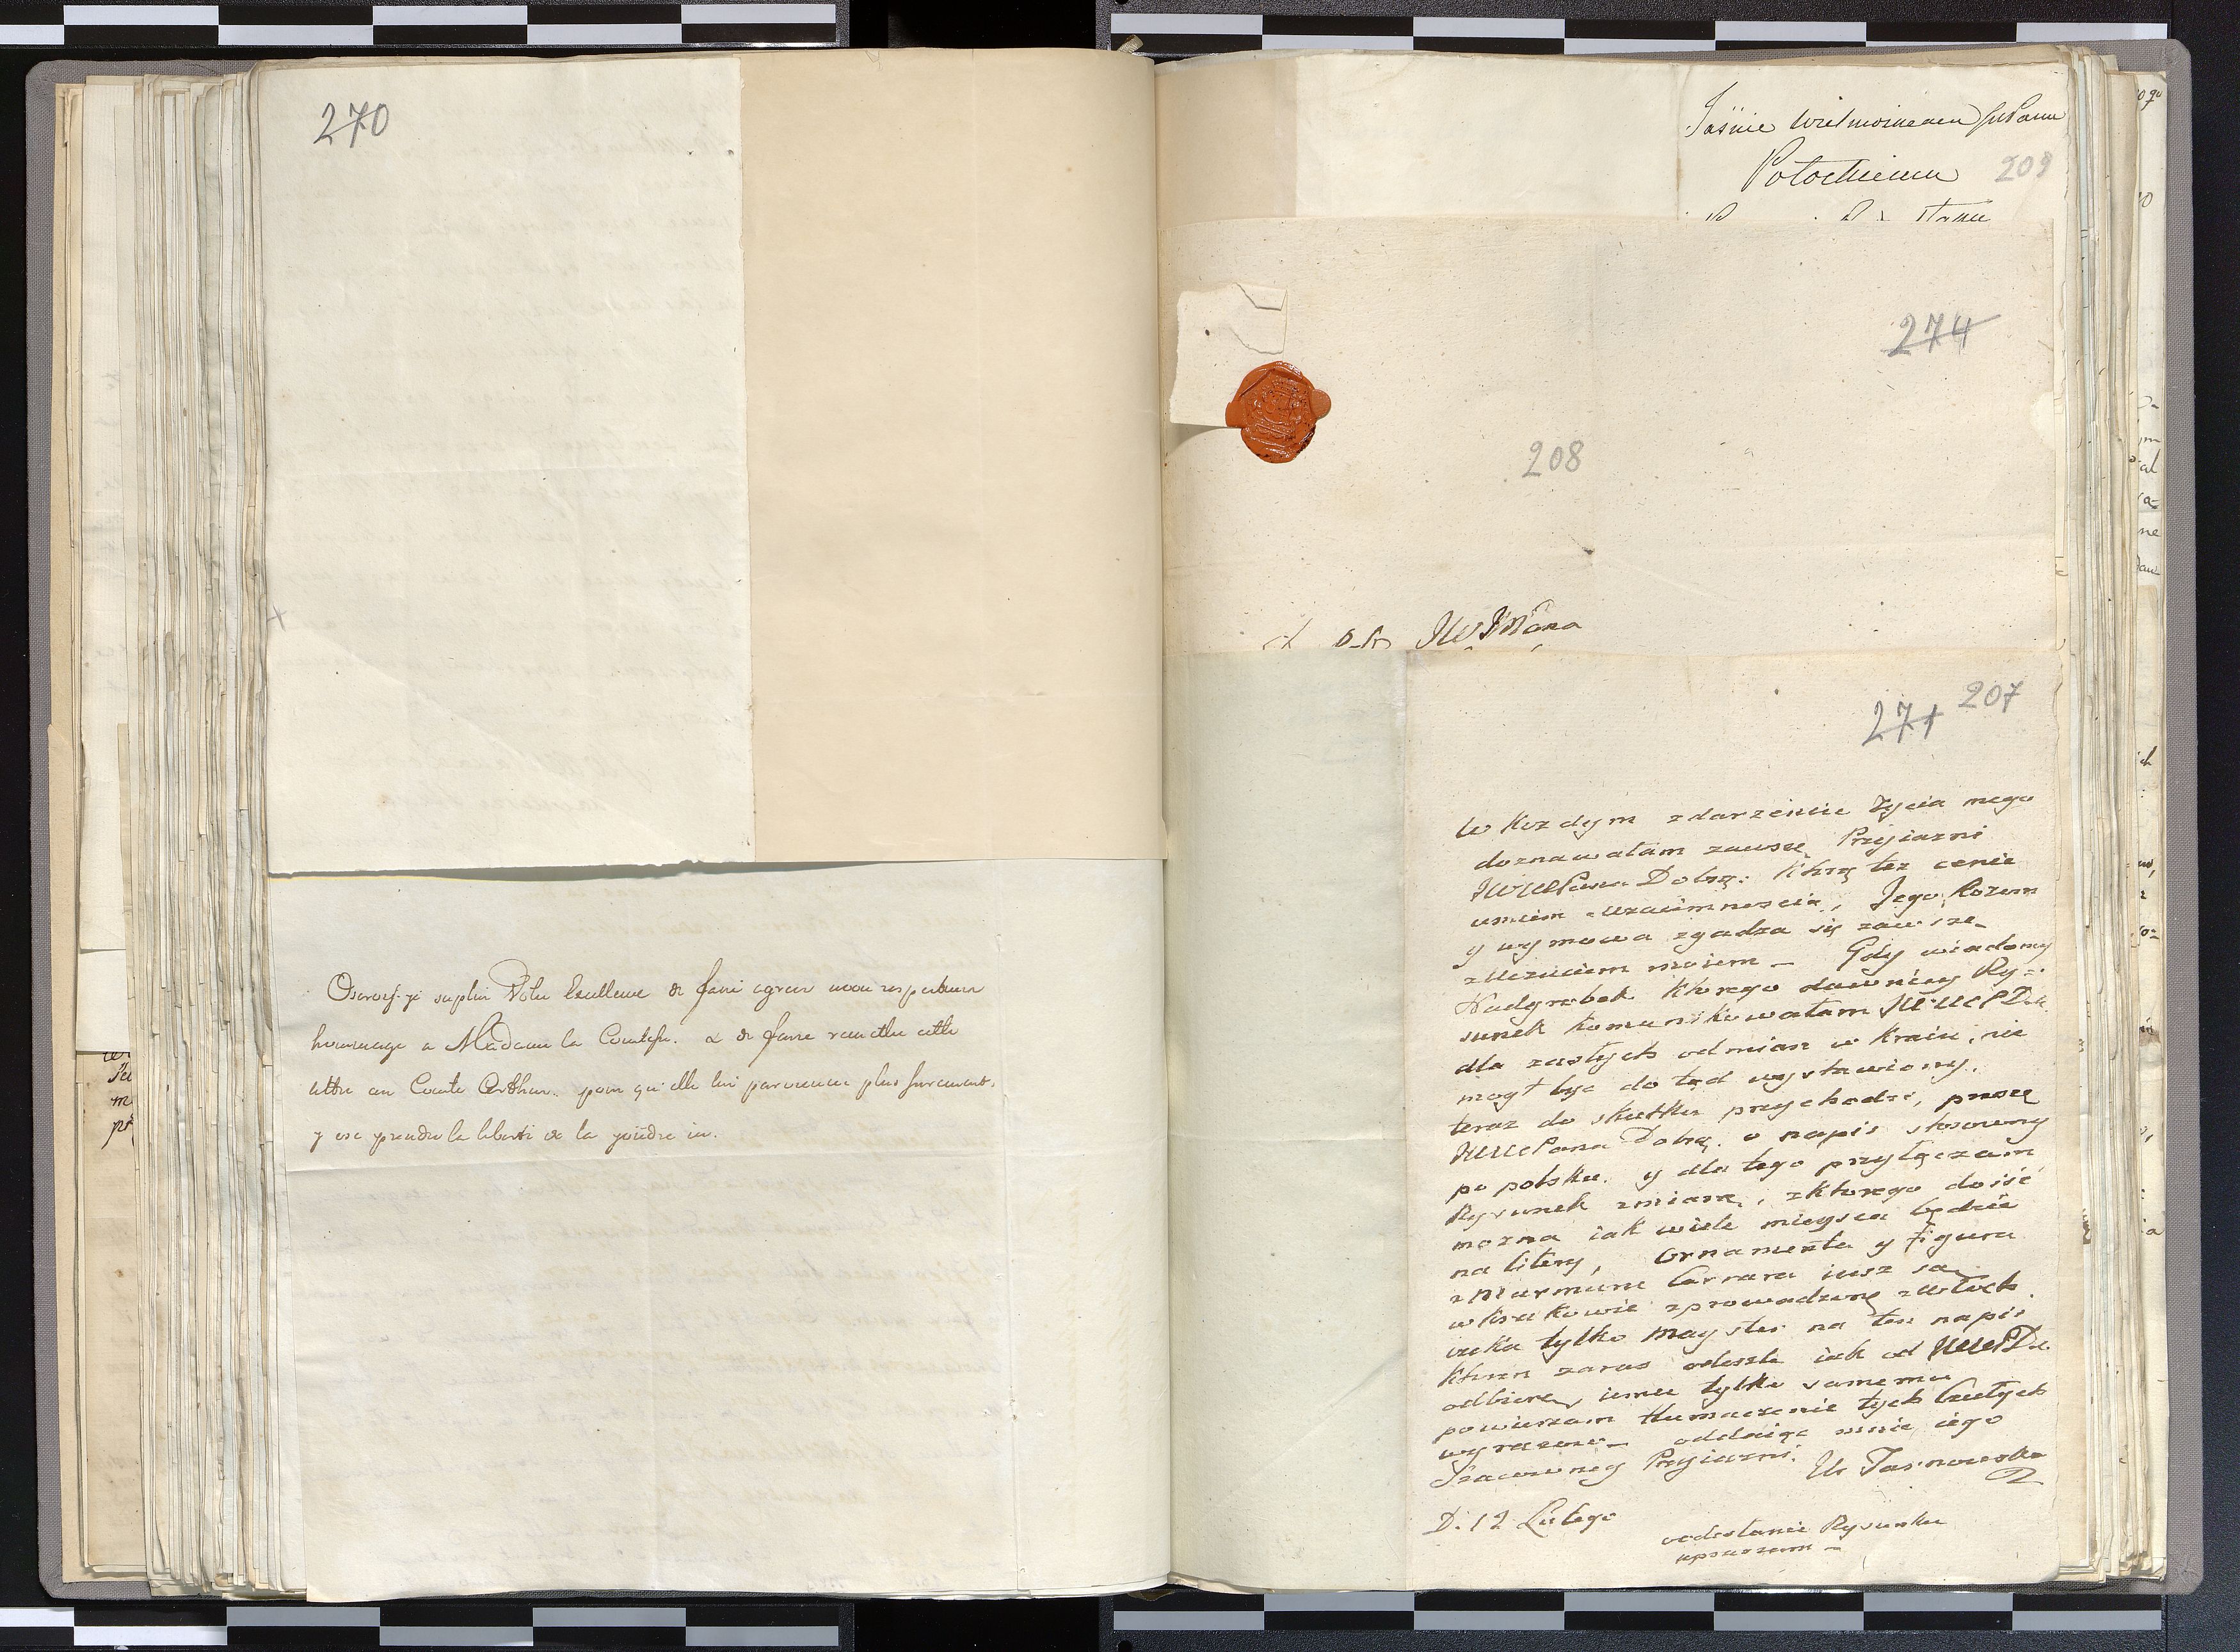 270
Oserois-je suplier Votre Excellence de faire agreer mon respectueux
hommage a Madame la Comtesse. & de faire remettre cette
lettre au Comte Arthur. pour qu'elle lui parvienne plus surement.
j'ose prendre la liberté de la joindre ici.
Jaśnie Wielmożnemu JmPanu
Potockiemu 209
274
208
JWJPana
207
271
W kozdym zdarzeniu Zycia mego
doznawałam zawsze Przyiazni
JWWPana Dobrę: Którę też cenie
umiem wzaiemnoscią, Jego Rozum
y wymowa zgadza się zawsze
z uczuciem moiem – Gdy wiadomy
Nadgrobek którego dawniey Ry=
sunek komunikowałam JWWPD
dla zaszłych odmian w kraiu, nie
mogł byc do tąd wystawiony,
teraz do skutku przychodzi, proszę
JWWPana Dobrę. o napis stosowny
po polsku. y dla tego przyłączam
Rysunek z miarą, z którego doiść
mozna iak wiele mieysca będzie
na litery, Ornamenta y figura
z Marmuru Carrara iusz są
w krakowie zprowadzone z Włoch.
czeka tylko Mayster na ten napis
który zaraz odeszlę iak od JWWPD
odbiorę, iemu tylko samemu
powierzam tłumaczenie tych Czułych
wyrazow – oddaiąc mnie iego
Szacowney Przyiazni.
Ur Tarnowska
D. 12 Lutego
odesłanie Rysunku
upraszam –